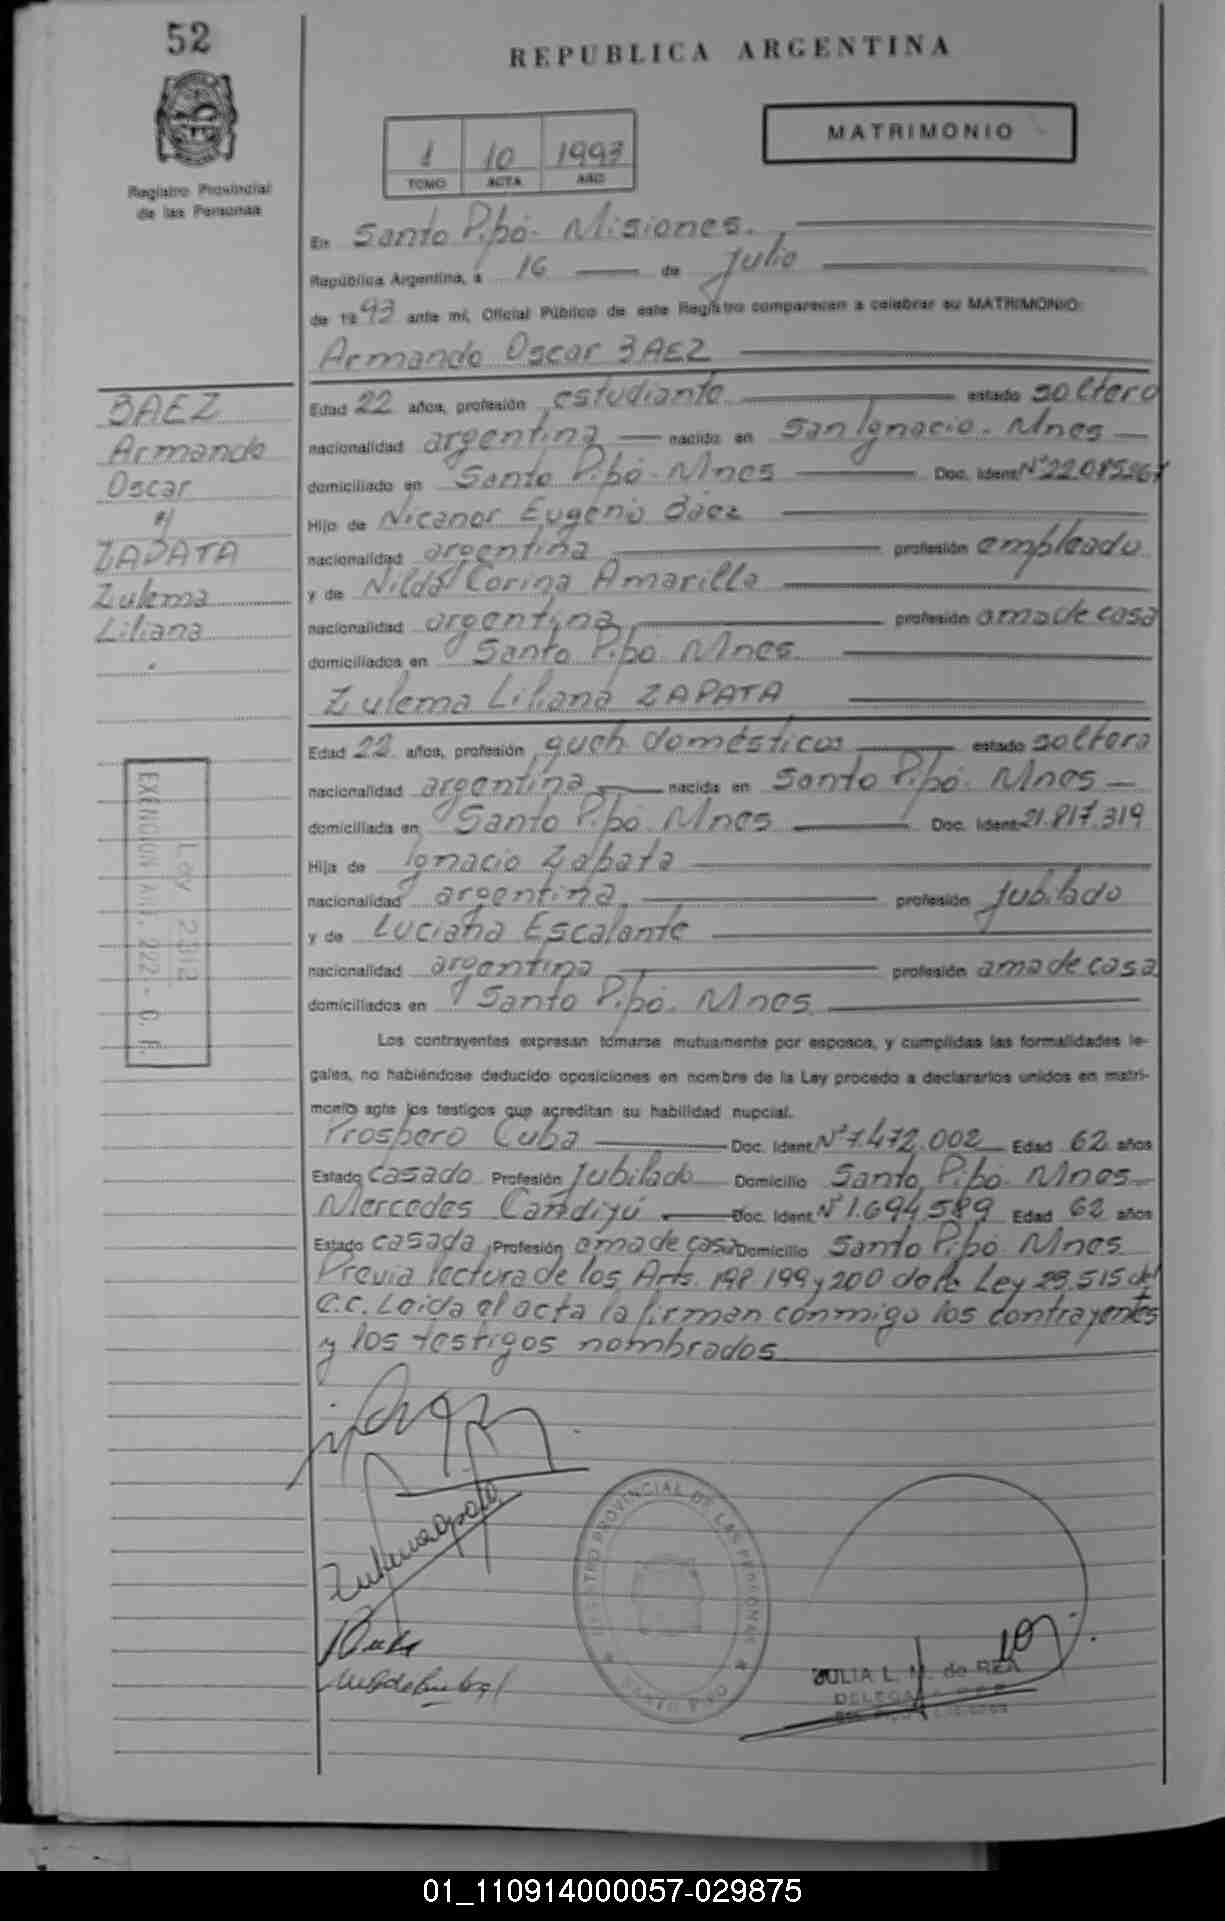 52
REPUBLICA ARGENTINA
MATRIMONIO
1 10 1993
TOMO ACTA AÑO
Registro Provincial
de las Personas
En Santo Pipó - Misiones.
República Argentina, a 16 de Julio
de 1993 ante mí, Oficial Público de este Registro comparecen a celebrar su MATRIMONIO:
Armando Oscar BAEZ
BAEZ
Armando
Oscar
y
ZAPATA
Zulema
Liliana
Edad 22 años, profesión estudiante estado soltero
nacionalidad argentina nacido en San Ignacio - Mnes
domiciliado en Santo Pipó - Mnes Doc. Ident. Nº 22.085.267
Hijo de Nicanor Eugenio Báez
nacionalidad argentina profesión empleado
y de Nilda Corina Amarilla
nacionalidad argentina profesión ama de casa
domiciliados en Santo Pipó Mnes
Zulema Liliana ZAPATA
Edad 22 años, profesión queh domésticos estado soltera
nacionalidad argentina nacida en Santo Pipó - Mnes
domiciliada en Santo Pipó - Mnes Doc. Ident. 21.817.319
Hija de Ignacio Zapata
nacionalidad argentina profesión Jubilado
y de Luciana Escalante
nacionalidad argentina profesión ama de casa
domiciliados en Santo Pipó - Mnes
Ley 2312
EXENCION Art. 222 - C. F.
Los contrayentes expresan tomarse mutuamente por esposos, y cumplidas las formalidades le-
gales, no habiéndose deducido oposiciones en nombre de la Ley procedo a declararlos unidos en matri-
monio ante los testigos que acreditan su habilidad nupcial.
Prospero Cuba Doc. Ident. Nº 7.472.002 Edad 62 años
Estado casado Profesión Jubilado Domicilio Santo Pipó - Mnes
Mercedes Candiyú Doc. Ident. Nº 1.694.589 Edad 62 años
Estado casada Profesión ama de casa Domicilio Santo Pipó Mnes
Previa lectura de los Arts. 198 199 y 200 de la Ley 23.515 del
C.C. Leida el acta la firman conmigo los contrayentes
y los testigos nombrados
Zulema Zapata
REGISTRO PROVINCIAL DE LAS PERSONAS
SANTO PIPO
JULIA L. M. de REA
01_110914000057-029875